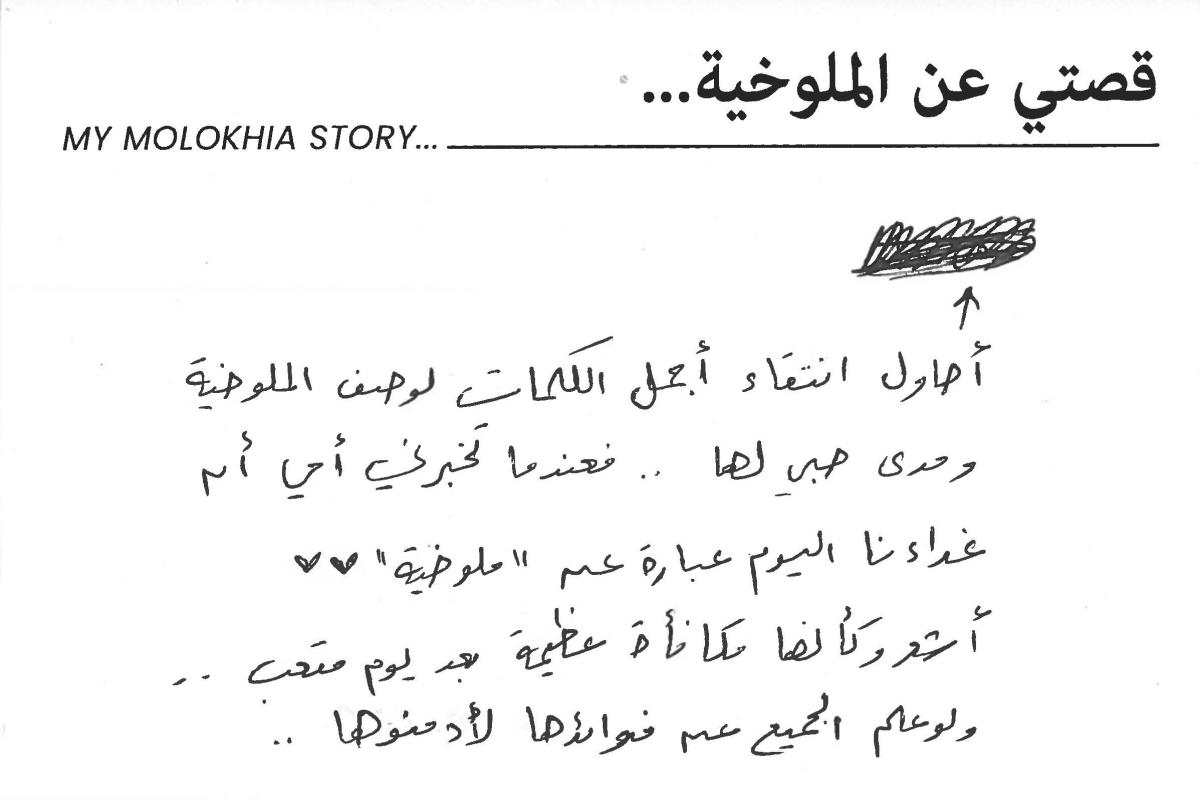 قصتي عن الملوخية...
MY MOLOKHIA STORY...
أحاول انتقاء أجمل الكلمات لوصف الملوخية
ومدى حبي لها .. فعندما تخبرني أمي أن
غداءنا اليوم عبارة عن "ملوخية" ♥♥
أشعر وكأنها مكافأة عظيمة بعد يوم متعب ..
ولو علم الجميع عن فوائدها لأدمنوها ..